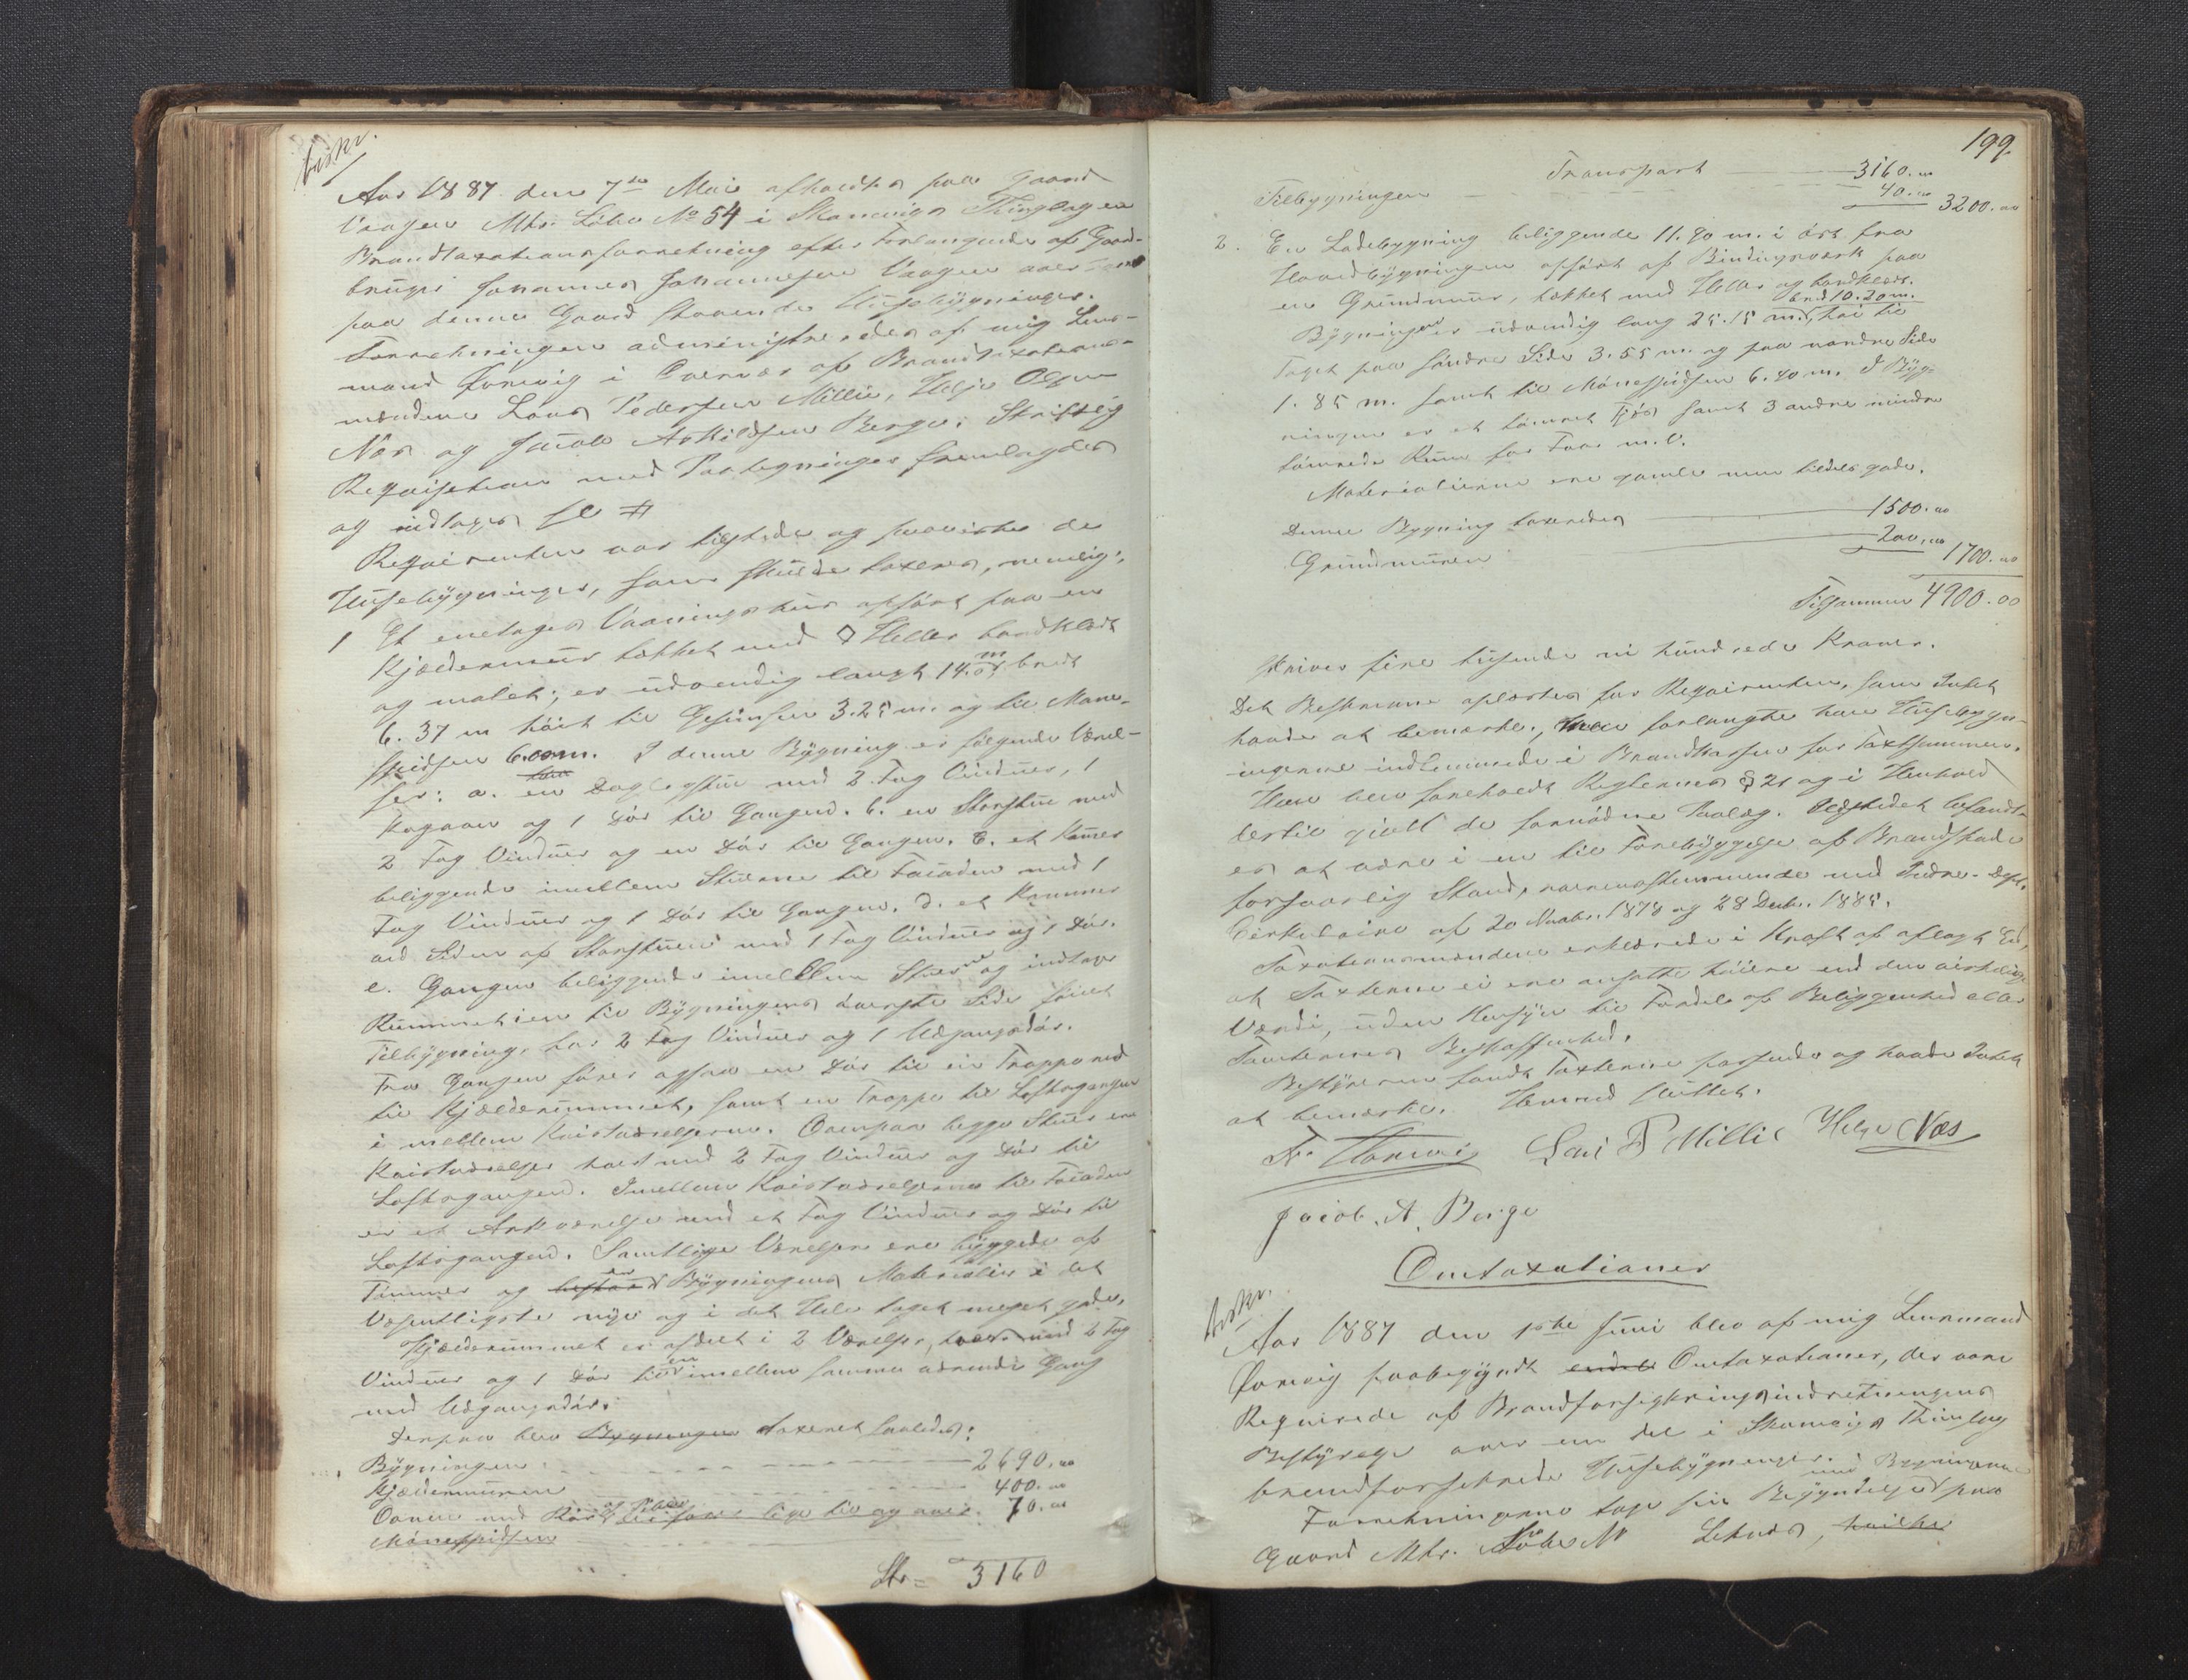 beskr.
Aar 1887 den 7de Mai afholdtes paa Gaard
Vaagen Mtr. Løbe No 54 i Skonevigs Thinglag en
Brandtaxationsforretning efter Forlangende af Gaard-
bruger Johannes Johannesen Vaagen over de
paa denne Gaard staaende Husebygninger.
Forretningen administreredes af mig Lens-
mand Hornvig i Overvær af Brandtaxations-
mændene Lars Pedersen Millie, Helje Olsen
Næs og Jacob Askildsen Berge. Skriftlig
Reqvisition med Paategninger fremlagdes
og indtages sc #
Reqvirenten var tilstede og paaviste de
Husebygninger, som skulde taxeres, nemlig:
1 Et enetages Vaaningshus opført paa en
Kjældermuur tækket med Heller bordklædt
og malet; er udvendig langt 14.05 m bredt
6.37 m høit til Gesimsen 3.25 m. og til Møne-
spidsen 6.00 m. I denne Bygning er følgende Værel-
ser: a. en Daglystue med 2 Fag Vinduer, 1
Kogeovn og 1 Dør til Gangen. b. en Storstue med
2 Fag Vinduer og en Dør til Gangen. c. et Kamer
beliggende imellem Stuerne til Facaden med 1
Fag Vinduer og 1 Dør til Gangen. d. et Kammer
ved Siden af Storstuen med 1 Fag Vinduer og 1 Dør.
e. Gangen beliggende imellem Stuerne og indtager
Rummet i en til Bygningens øverste Side føiet
Tilbygning, har 2 Fag Vinduer og 1 Udgangsdør.
Fra Gangen fører ogsaa en Dør til en Trappe ned
til Kjælderrummet, samt en Trappe til Loftsgangen
imellem Kvistværelserne. Ovenpaa begge Stuer ere
Kvistværelser hvert med 2 Fag Vinduer og Dør til
Loftsgangen. Imellem Kvistværelserne til Facaden
er et Arkværelse med et Fag Vinduer og Dør til
Loftsgangen. Samtlige Værelser ere byggede af
Tømmer og bestaar er Bygningens Materialier i det
Væsentligste nye og i det Hele taget meget gode.
Kjælderrummet er afdelt i 2 Værelser, hvert med 2 Fag
Vinduer og 1 Dør til en imellem samme værende Gang
med Udgangsdør.
Derpaa blev Bygningen taxeret saaledes:
Bygningen 2690.00
Kjældermuren 400.00
Ovnen med Rør af Piben lige til og over 70.00
Mønespidsen
Str= 3160
199.
Transport 3160.00
Tilbygningen 40.00 3200.00
2. En Ladebygning beliggende 11.90 m. i øst fra
Hovedbygningen opført af Bindingsværk paa
en Grundmuur, tækket med Heller og bordklædt.
bred 10.20 m.
Bygningen er udvendig lang 25.15 m., høi til
Taget paa søndre Side 3.55 m. og paa nordre Side
1.85 m. samt til Mønespidsen 6.40 m. I Byg-
ningen er et tømret Fjøs samt 3 andre mindre
tømrede Rum for Faar m.v.
Materialierne ere gamle men tildels gode.
Denne Bygning taxeredes 1500.00
Grundmuren 200.00 1700.00
Tilsammen 4900.00
skriver fire tusende ni hundrede Kroner.
Det Beskrevne oplæstes for Reqvirenten, som Intet
havde at bemærke, men forlangte sine Husebygn-
ingerne indlemmede i Brandkassen for Taxtsummen.
Ham blev foreholdt Reglernes § 21 og i Henhold
dertil givet de fornødne Paalæg. Ildstedet befandt-
es at være i en til Forebyggelse af Brandskade
forsvarlig Stand, overensstemmende med Indre-Dept.
Cirkulaire af 20 Novbr. 1878 og 28 Decbr. 1885.
Taxationsmændene erklærede i Kraft af aflagt Ed,
at Taxterne ei ere ansatte høiere end den virkelige
Værdi, uden Hensyn til Fordel af Beliggenhed eller
Tomternes Beskaffenhed.
Bestyreren fandt Taxterne passende og havde Intet
at bemærke. Hermed sluttet.
Lars P Millie Helge Næs
Jacob. A. Berge
Omtaxationer
beskr.
Aar 1887 den 1ste Juni blev af mig Lensmand
Hornvig paabegyndt endel Omtaxationer, der vare
Reqvirede af Brandforsikringsindretningens
Bestyrelse over en del i Skonevigs Thinglag
brandforsikrede Husebygninger.
Forretningerne tage sin Begyndelse med Bygningerne paa
Gaard Mtr. Løbe No Leknes, hvilke